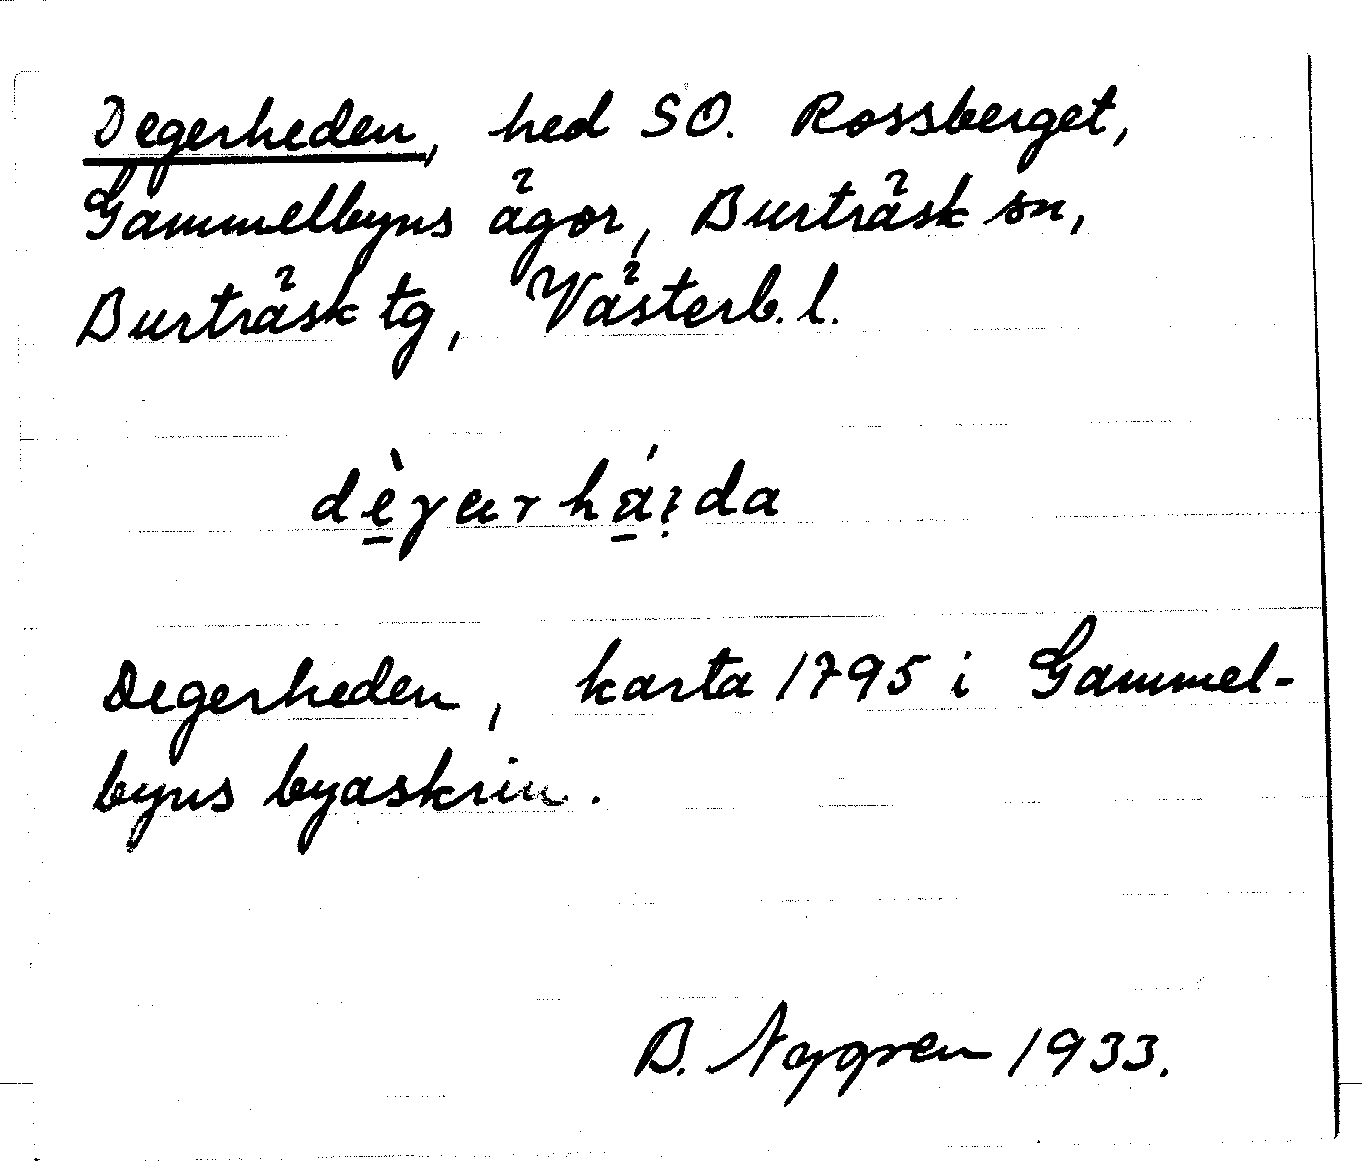 Degerheden, hed SO. Rossberget,
Gammelbyns ägor, Burträsk sn,
Burträsk tg, Västerb. l.
Degerheden, karta 1795 i Gammel-
byns byaskrin.
B. Nygren 1933.